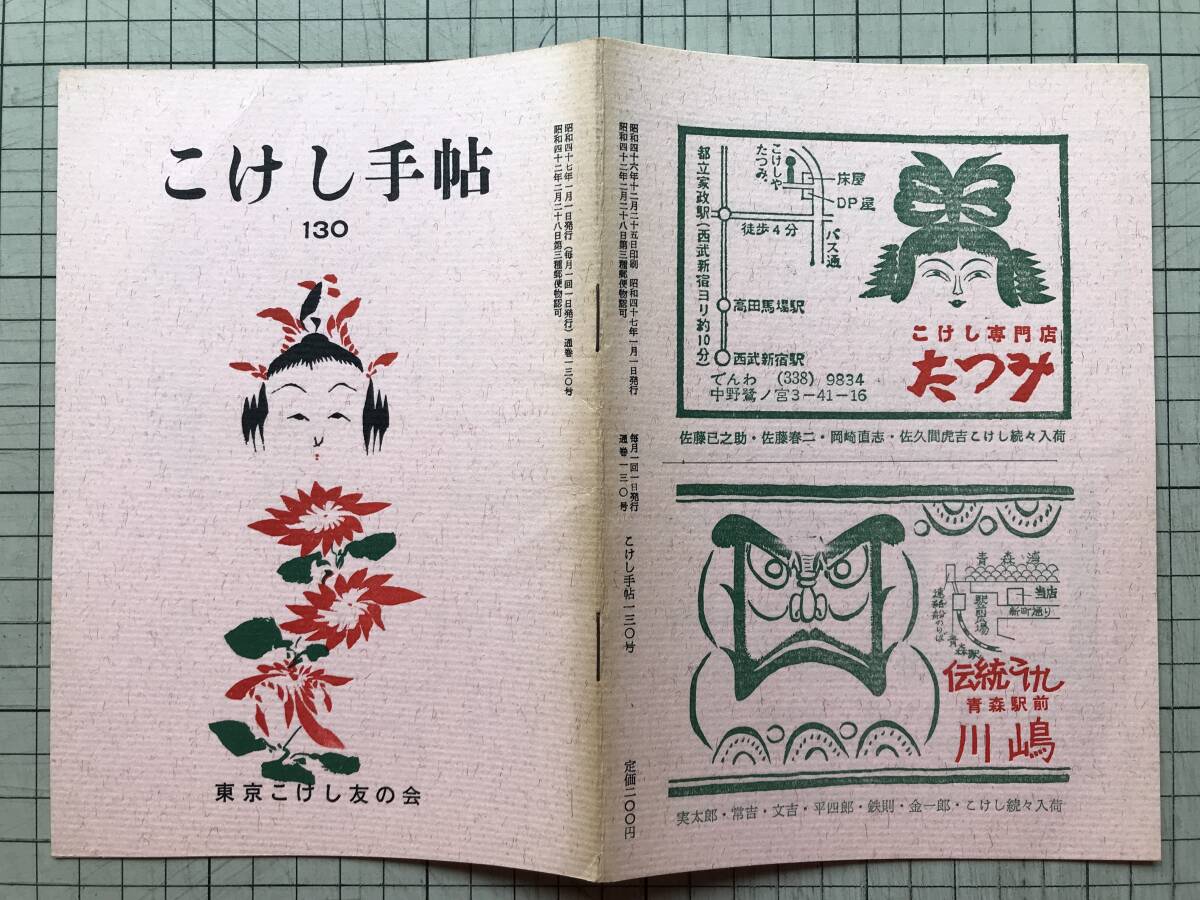 こけし手帖
130
東京こけし友の会
昭和四十七年一月一日発行（毎月一回一日発行）通巻一三〇号
昭和四十二年二月二十八日第三種郵便物認可
昭和四十六年十二月二十五日印刷 昭和四十七年一月一日発行
昭和四十二年二月二十八日第三種郵便物認可
毎月一回一日発行
通巻一三〇号
こけし手帖一三〇号
定価二〇〇円
都立家政駅（西武新宿ヨリ約10分）
こけしや
たつみ
床屋
DP屋
徒歩4分
バス通
高田馬場駅
西武新宿駅
でんわ (338) 9834
中野鷺ノ宮3-41-16
こけし専門店
たつみ
佐藤巳之助・佐藤春二・岡崎直志・佐久間虎吉こけし続々入荷
青森湾
当店
新町通り
駅前広場
連絡船のりば
青森駅
伝統こけし
青森駅前
川嶋
実太郎・常吉・文吉・平四郎・鉄則・金一郎・こけし続々入荷